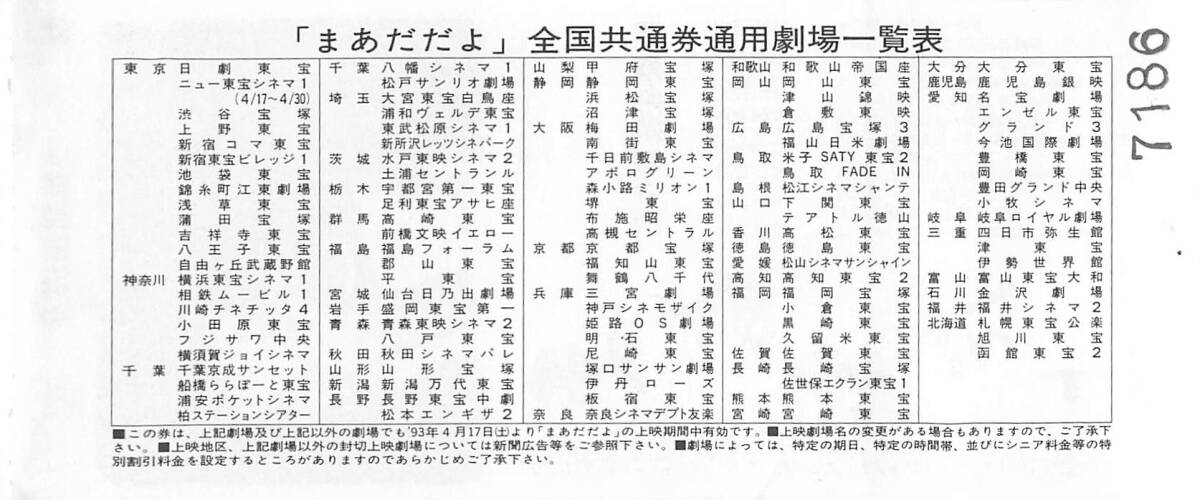 「まあだだよ」全国共通券通用劇場一覧表
7186
東京 日劇東宝
ニュー東宝シネマ1
(4/17〜4/30)
渋谷宝塚
上野東宝
新宿コマ東宝
新宿東宝ビレッジ1
池袋東宝
錦糸町江東劇場
浅草東宝
蒲田宝塚
吉祥寺東宝
八王子東宝
自由ヶ丘武蔵野館
神奈川 横浜東宝シネマ1
相鉄ムービル1
川崎チネチッタ4
小田原東宝
フジサワ中央
横須賀ジョイシネマ
千葉 千葉京成サンセット
船橋ららぽーと東宝
浦安ポケットシネマ
柏ステーションシアター
千葉 八幡シネマ1
松戸サンリオ劇場
埼玉 大宮東宝白鳥座
浦和ヴェルデ東宝
東武松原シネマ1
新所沢レッツシネパーク
茨城 水戸東映シネマ2
土浦セントラル
栃木 宇都宮第一東宝
足利東宝アサヒ座
群馬 高崎東宝
前橋文映イエロー
福島 福島フォーラム
郡山東宝
平東宝
宮城 仙台日乃出劇場
岩手 盛岡東宝第一
青森 青森東映シネマ2
八戸東宝
秋田 秋田シネマパレ
山形 山形宝塚
新潟 新潟万代東宝
長野 長野東宝中劇
松本エンギザ2
山梨 甲府宝塚
静岡 静岡東宝
浜松宝塚
沼津宝塚
大阪 梅田劇場
南街東宝
千日前敷島シネマ
アポログリーン
森小路ミリオン1
堺東宝
布施昭栄座
高槻セントラル
京都 京都宝塚
福知山東宝
舞鶴八千代
兵庫 三宮劇場
神戸シネモザイク
姫路OS劇場
明石東宝
尼崎東宝
塚口サンサン劇場
伊丹ローズ
板宿東宝
奈良 奈良シネマデプト友楽
和歌山 和歌山帝国座
岡山 岡山東宝
津山錦映
倉敷東映
広島 広島宝塚3
福山日米劇場
鳥取 米子SATY東宝2
鳥取FADE IN
島根 松江シネマシャンテ
山口 下関東宝
テアトル徳山
香川 高松東宝
徳島 徳島東宝
愛媛 松山シネマサンシャイン
高知 高知東宝2
福岡 福岡宝塚
小倉東宝
黒崎東宝
久留米東宝
佐賀 佐賀東宝
長崎 長崎宝塚
佐世保エクラン東宝1
熊本 熊本東宝
宮崎 宮崎東宝
大分 大分東宝
鹿児島 鹿児島銀映
愛知 名宝劇場
エンゼル東宝
グランド3
今池国際劇場
豊橋東宝
岡崎東宝
豊田グランド中央
小牧シネマ
岐阜 岐阜ロイヤル劇場
三重 四日市弥生館
津東宝
伊勢世界館
富山 富山東宝大和
石川 金沢劇場
福井 福井シネマ2
北海道 札幌東宝公楽
旭川東宝
函館東宝2
■この券は、上記劇場及び上記以外の劇場でも'93年4月17日(土)より「まあだだよ」の上映期間中有効です。■上映劇場名の変更がある場合もありますので、ご了承下
さい。■上映地区、上記劇場以外の封切上映劇場については新聞広告等をご参照下さい。■劇場によっては、特定の期日、特定の時間帯、並びにシニア料金等の特
別割引料金を設定するところがありますのであらかじめご了承下さい。